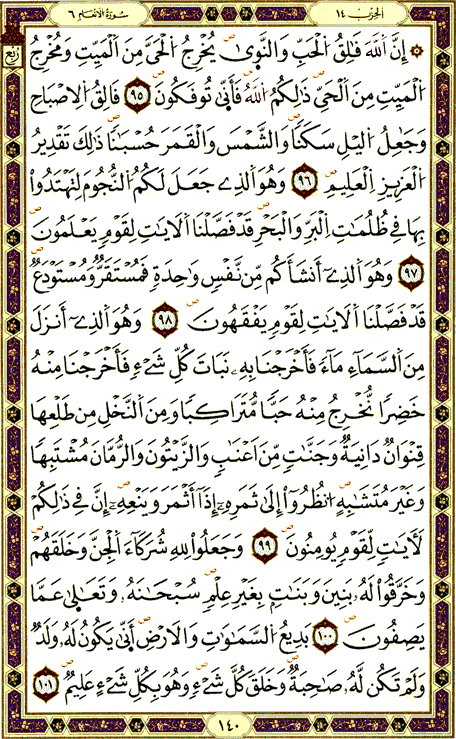 الحزب ١٤
سورة الأنعام ٦
ربع
۞ إِنَّ اَللَّهَ فَٰلِقُ اُلْحَبِّ وَالنَّوَىٰ يُخْرِجُ اُلْحَيَّ مِنَ اَلْمَيِّتِ وَمُخْرِجُ
اُلْمَيِّتِ مِنَ اَلْحَيِّ ذَٰلِكُمُ اُللَّهُ فَأَنَّىٰ تُوفَكُونَ ٩٥ فَالِقُ اُلْإِصْبَاحِ
وَجَٰعِلُ اُلَّيْلِ سَكَناً وَالشَّمْسَ وَالْقَمَرَ حُسْبَٰناً ذَٰلِكَ تَقْدِيرُ
اُلْعَزِيزِ اِلْعَلِيمِ ٩٦ وَهُوَ اَلَّذِے جَعَلَ لَكُمُ اُلنُّجُومَ لِتَهْتَدُواْ
بِهَا فِے ظُلُمَٰتِ اِلْبَرِّ وَالْبَحْرِ قَدْ فَصَّلْنَا اَلْأَيَٰتِ لِقَوْمٍ يَعْلَمُونَ
٩٧ وَهُوَ اَلَّذِےٓ أَنشَأَكُم مِّن نَّفْسٍ وَٰحِدَةٍ فَمُسْتَقَرٌّ وَمُسْتَوْدَعٌ
قَدْ فَصَّلْنَا اَلْأَيَٰتِ لِقَوْمٍ يَفْقَهُونَ ٩٨ وَهُوَ اَلَّذِےٓ أَنزَلَ
مِنَ اَلسَّمَآءِ مَآءً فَأَخْرَجْنَا بِهِۦ نَبَاتَ كُلِّ شَےْءٍ فَأَخْرَجْنَا مِنْهُ
خَضِراً نُّخْرِجُ مِنْهُ حَبّاً مُّتَرَاكِباً وَمِنَ اَلنَّخْلِ مِن طَلْعِهَا
قِنْوَانٌ دَانِيَةٌ وَجَنَّٰتٍ مِّنَ اَعْنَٰبٍ وَالزَّيْتُونَ وَالرُّمَّانَ مُشْتَبِهاً
وَغَيْرَ مُتَشَٰبِهٍ اُنظُرُوٓاْ إِلَىٰ ثَمَرِهِۦٓ إِذَآ أَثْمَرَ وَيَنْعِهِۦٓ إِنَّ فِے ذَٰلِكُمْ
لَأٓيَٰتٍ لِّقَوْمٍ يُومِنُونَ ٩٩ وَجَعَلُواْ لِلهِ شُرَكَآءَ اَلْجِنَّ وَخَلَقَهُمْ
وَخَرَّقُواْ لَهُۥ بَنِينَ وَبَنَٰتٍ بِغَيْرِ عِلْمٍ سُبْحَٰنَهُۥ وَتَعَٰلَىٰ عَمَّا
يَصِفُونَ ١٠٠ بَدِيعُ اُلسَّمَٰوَٰتِ وَالْأَرْضِ أَنَّىٰ يَكُونُ لَهُۥ وَلَدٌ
وَلَمْ تَكُن لَّهُۥ صَٰحِبَةٌ وَخَلَقَ كُلَّ شَےْءٍ وَهُوَ بِكُلِّ شَےْءٍ عَلِيمٌ ١٠١
١٤٠